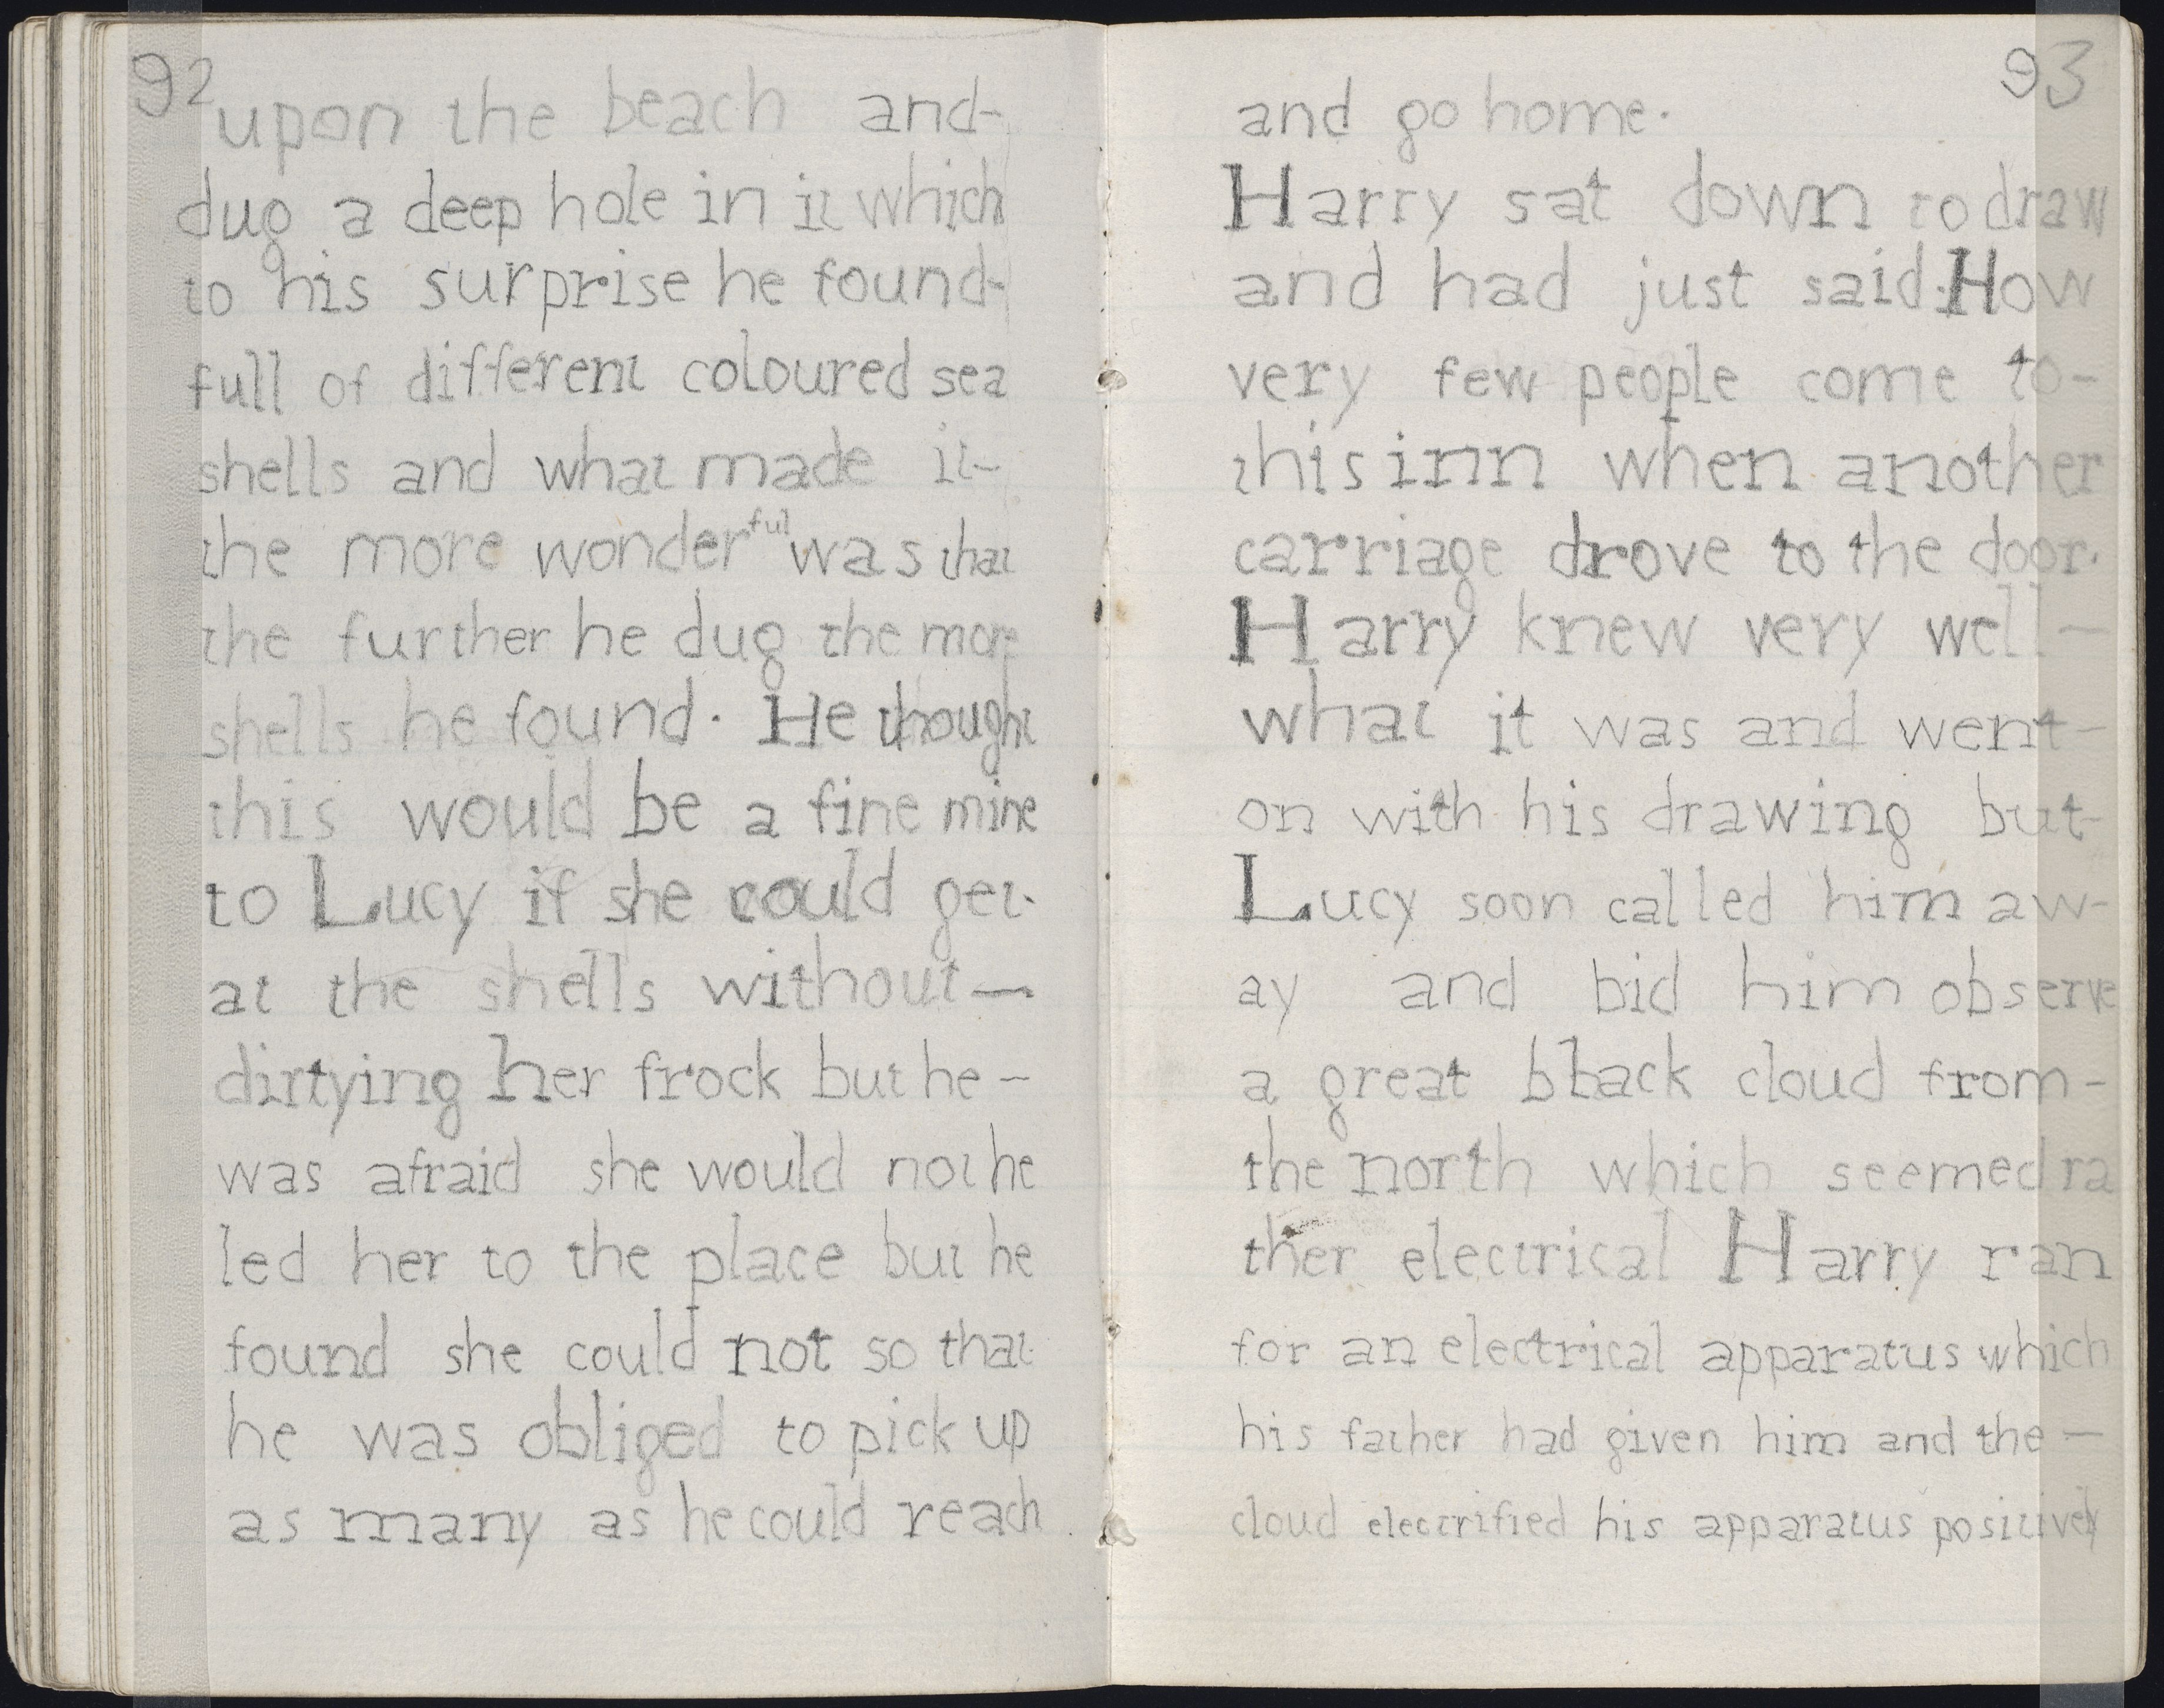 92
upon the beach and-
dug a deep hole in it which
to his surprise he found-
full of different coloured sea
shells and what made it-
the more wonderful was that
the further he dug the more
shells he found. He thought
this would be a fine mine
to Lucy if she could get.
at the shells without—
dirtying her frock but he-
was afraid she would not he
led her to the place but he
found she could not so that
he was obliged to pick up
as many as he could reach
93
and go home.
Harry sat down to draw
and had just said. How
very few people come to-
this inn when another
carriage drove to the door.
Harry knew very well-
what it was and went-
on with his drawing but-
Lucy soon called him aw-
ay and bid him observe
a great black cloud from-
the north which seemed ra
ther electrical Harry ran
for an electrical apparatus which
his father had given him and the-
cloud electrified his apparatus positively